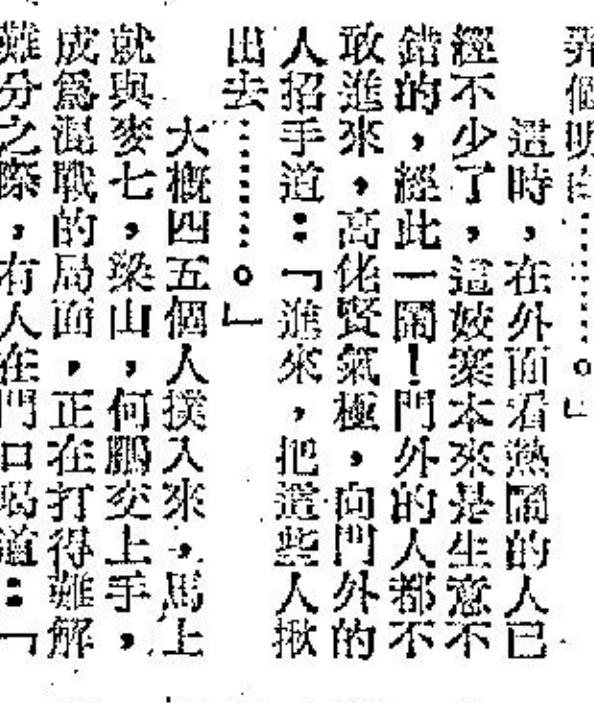 弄個明白…………。」
這時，在外面看熱鬧的人已
經不少了，這妓寨本來是生意不
錯的，經此一鬧！門外的人都不
敢進來，高佬賢氣極，向門外的
人招手道：「進來，把這些人揪
出去…………。」
大概四五個人撲入來，馬上
就與麥七，梁山，何鵬交上手，
成爲混戰的局面，正在打得難解
難分之際，有人在門口喝道：「